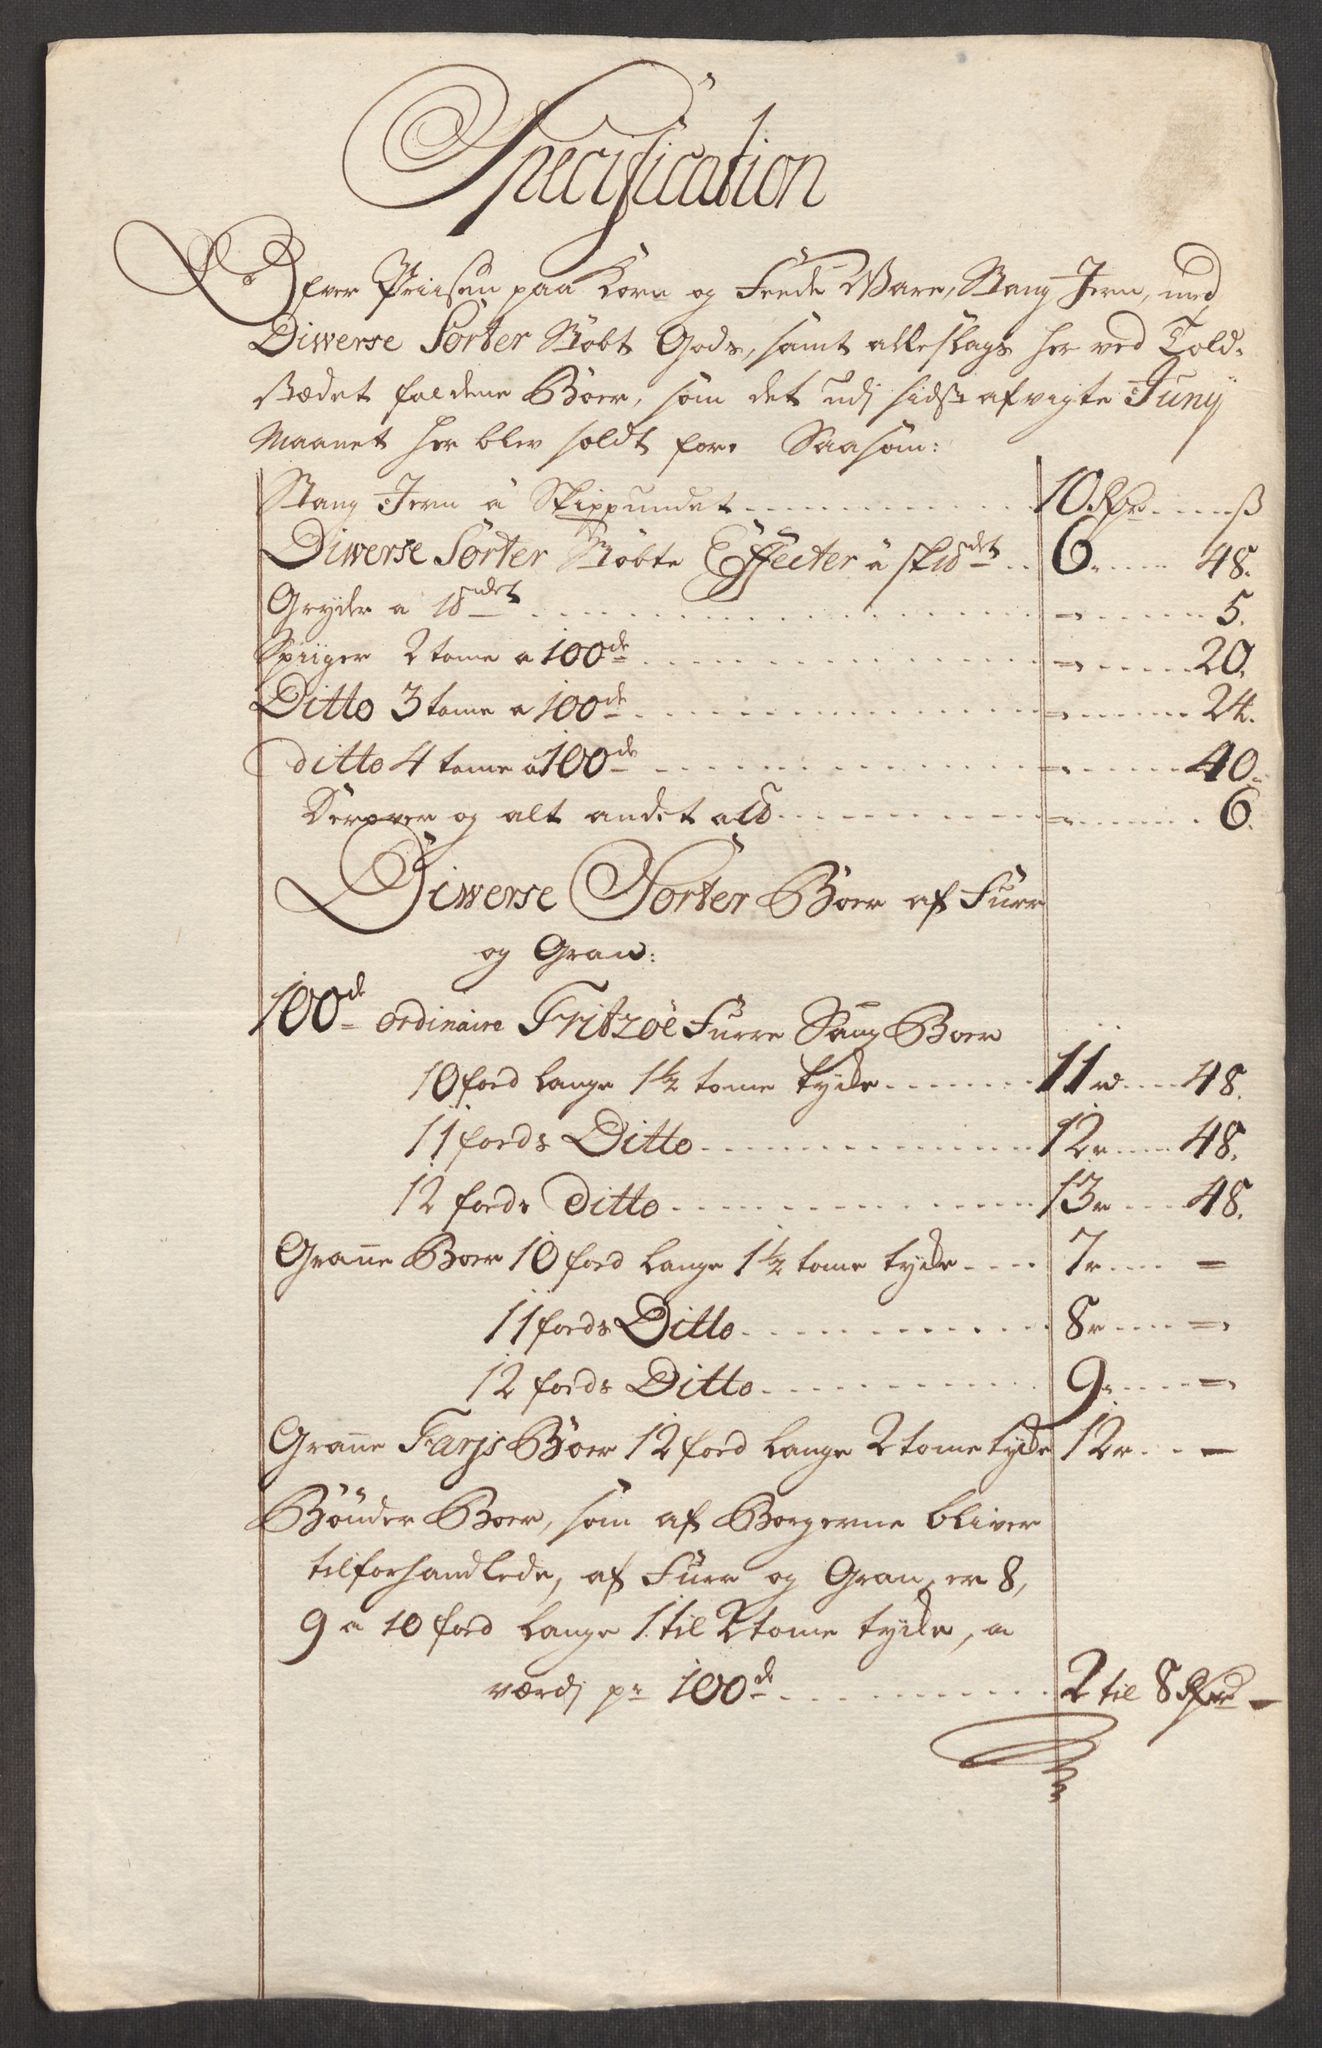 Specification
Ofver Priisen paa Korn og Feede Vare, Stang Jern, med
Diwerse Sorter Støbt Gods, samt alleslags her ved Told-
Stædet faldene Boer, som det udj sidst afvigte Junij
Maanet her blev soldt for. Saasom:
Stang Jern á Skippundet 10 Rdr ß
Diwerse Sorter Støbte Effecter á sk℔det 6. 48.
Gryder a ℔det = 5.
Spiiger 2 tome a 100de = 20.
Ditto 3 tome a 100de = 24.
ditto 4 tome a 100de = 40.
og alt andet a ℔ = 6.
Diwerse Sorter Boer af Furr
og Gran:
100de ordinaire Fritzøe Furre Saug Boer
10 foed lange 1½ tome tyke 11 r 48.
11 foeds Ditto 12 r 48.
12 foeds Ditto 13 r 48.
Granne Boer 10 foed lange 1½ tome tyke 7 r =
11 foeds Ditto 8 r =
12 foeds Ditto 9. =
Granne Farjs Boer 12 foed lange 2 tome tyke 12 r –
Bønder Boer, som af Borgerne bliver
tilforhandlede, af Furr og Gran, er 8,
9 a 10 foed lange 1 til 2 tome tycke, a
værdj pr 100de 2 til 8 Rdr –